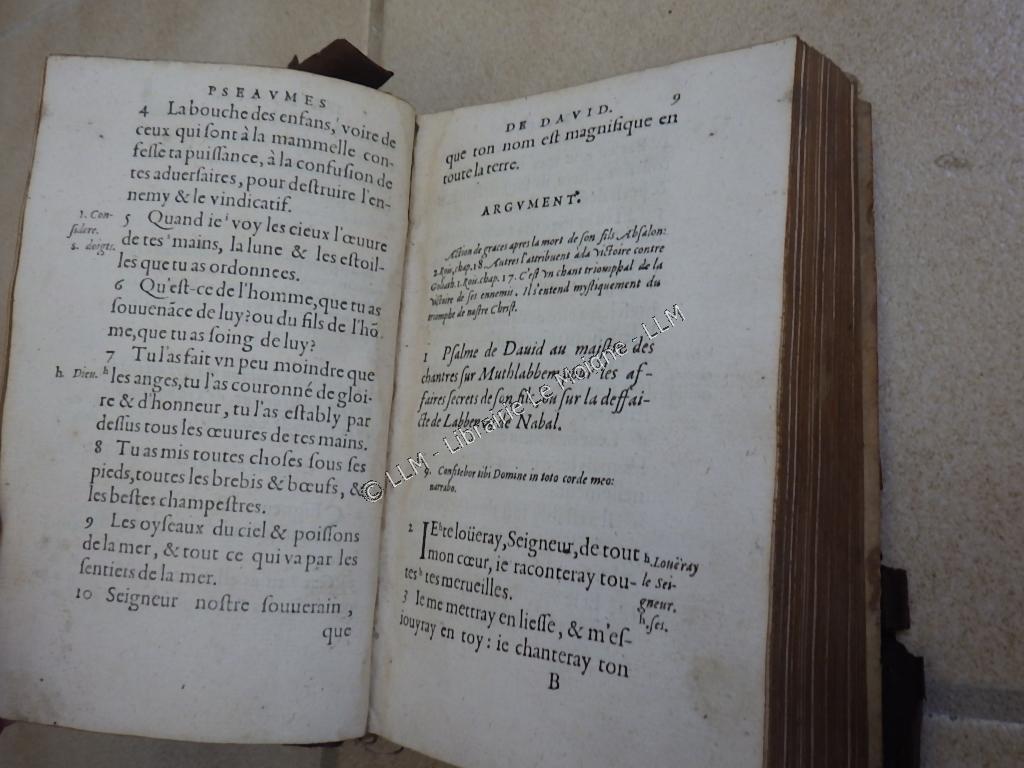 PSEAVMES
4 La bouche des enfans, voire de
ceux qui sont à la mammelle con-
fesse ta puissance, à la confusion de
tes aduersaires, pour destruire l'en-
nemy & le vindicatif.
5 Quand ie i voy les cieux l'œuure
de tes s mains, la lune & les estoil-
les que tu as ordonnees.
6 Qu'est-ce de l'homme, que tu as
souuenāce de luy? ou du fils de l'hō
me, que tu as soing de luy?
7 Tu l'as fait vn peu moindre que
h les anges, tu l'as couronné de gloi-
re & d'honneur, tu l'as estably par
dessus tous les œuures de tes mains.
8 Tu as mis toutes choses sous ses
pieds, toutes les brebis & bœufs, &
les bestes champestres.
9 Les oyseaux du ciel & poissons
de la mer, & tout ce qui va par les
sentiers de la mer.
10 Seigneur nostre souuerain,
que
1. Con-
sidere.
s. doigts.
h. Dieu.
DE DAVID. 9
que ton nom est magnifique en
toute la terre.
ARGVMENT.
Action de graces apres la mort de son fils Absalon:
2. Rois, chap. 18. Autres l'attribuent à la victoire contre
Goliath. 1. Rois. chap. 17. C'est vn chant triomphal de la
victoire de ses ennemis. Il s'entend mystiquement du
triomphe de nostre Christ.
1 Psalme de Dauid au maistre des
chantres sur Muthlabben, les af-
faires secrets de son fils, on sur la deffai-
cte de Labben de Nabal.
9. Confitebor tibi Domine in toto corde meo:
narrabo.
2 IE h te loüeray, Seigneur, de tout
mon cœur, ie raconteray tou-
tes h tes merueilles.
3 Ie me mettray en liesse, & m'es-
iouyray en toy: ie chanteray ton
B
h. Louëray
le Sei-
gneur.
h. ses.
© LLM - Librairie Le Moigne - LLM